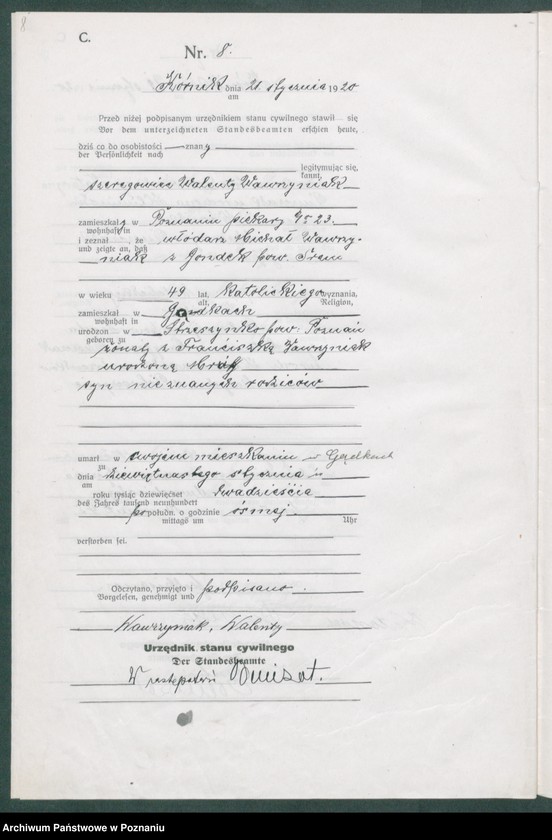 8
C.
Nr. 8.
Kórnik dnia 21 stycznia 1920
am
Przed niżej podpisanym urzędnikiem stanu cywilnego stawił się
Vor dem unterzeichneten Standesbeamten erschien heute,
dziś co do osobistości znany
der Persönlichkeit nach
legitymując się,
kannt,
szeregowiec Walenty Wawrzyniak
zamieszkały w Poznaniu piekary No 23.
wohnhaft in
i zeznał, że włodarz Michał Wawrzy-
und zeigte an, daß
niak z Gondek pow. Śrem
w wieku 49 lat, katolickiego wyznania,
alt, Religion,
zamieszkał w Gondkach
wohnhaft in
urodzon w Strzeszynko pow. Poznań
geboren zu
żonaty z Franciszką Wawrzyniak
urodzoną
syn nieznanych rodziców
umarł w swojem mieszkaniu w Gądkach
zu
dnia dziewiętnastego stycznia
am
roku tysiąc dziewięćset dwadzieścia
des Jahres tausend neunhundert
po połudn. o godzinie ósmej
mittags um Uhr
verstorben sei.
Odczytano, przyjęto i podpisano.
Vorgelesen, genehmigt und
Wawrzyniak, Walenty
Urzędnik stanu cywilnego
Der Standesbeamte
W zastępstwie
Archiwum Państwowe w Poznaniu